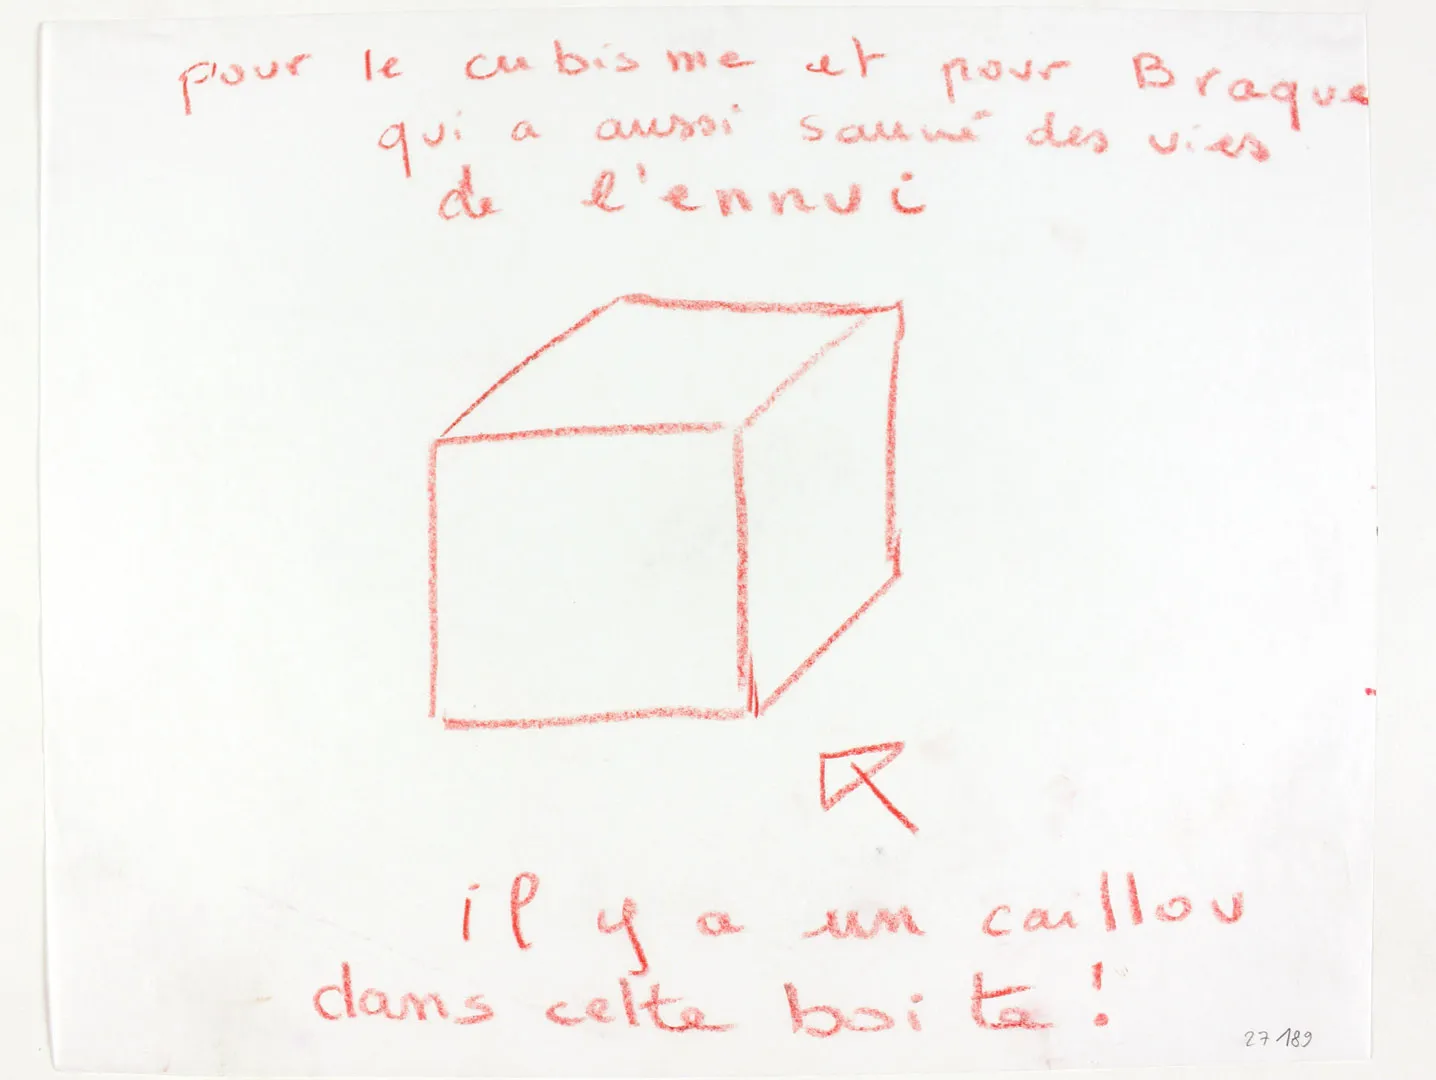 pour le cubisme et pour Braque
qui a aussi sauvé des vies
de l'ennui
il y a un caillou
dans cette boite !
27 189